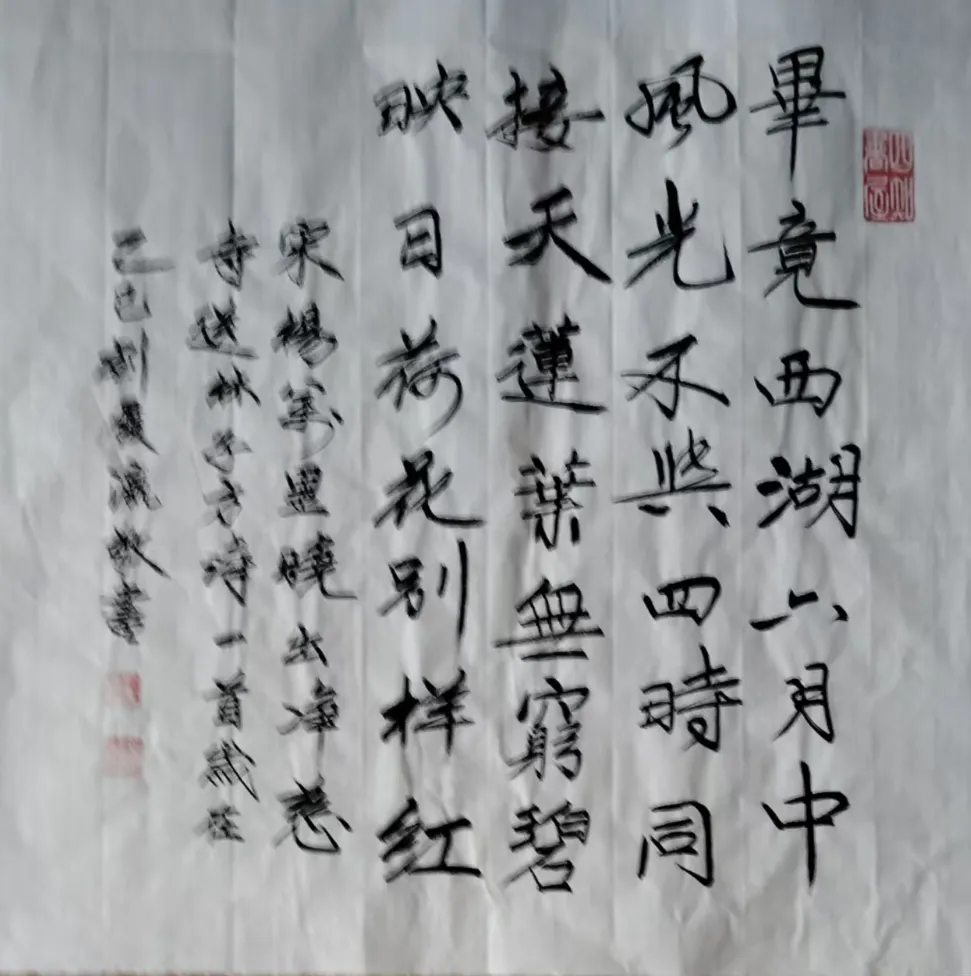 畢竟西湖六月中
風光不與四時同
接天蓮葉無窮碧
映日荷花别样红
宋楊萬里曉出净慈
寺送林子方詩一首歲在
乙巳刘夏瀛敬書